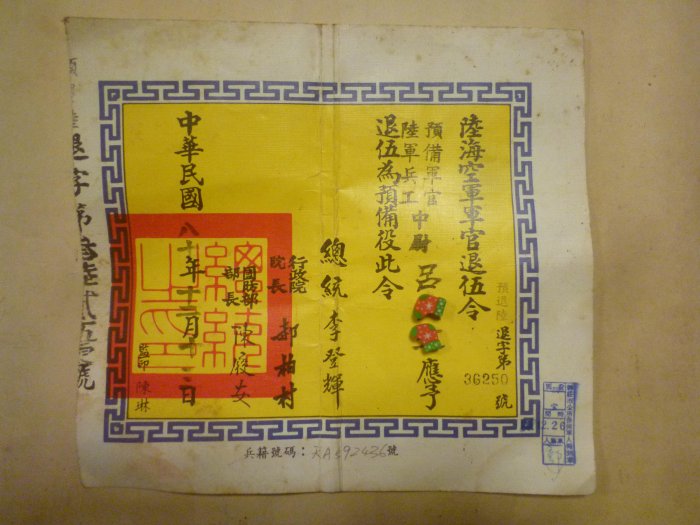 陸海空軍軍官退伍令
預退陸 退字第
36250 號
預備軍官
陸軍兵工 中尉 呂 應予
退伍為預備役此令
總統 李登輝
行政院
院長 郝柏村
國防部
部長 陳履安
總統之印
中華民國 八十年十二月 日
監印 陳琳
退字第 號
兵籍號碼： 392436 號
2.26